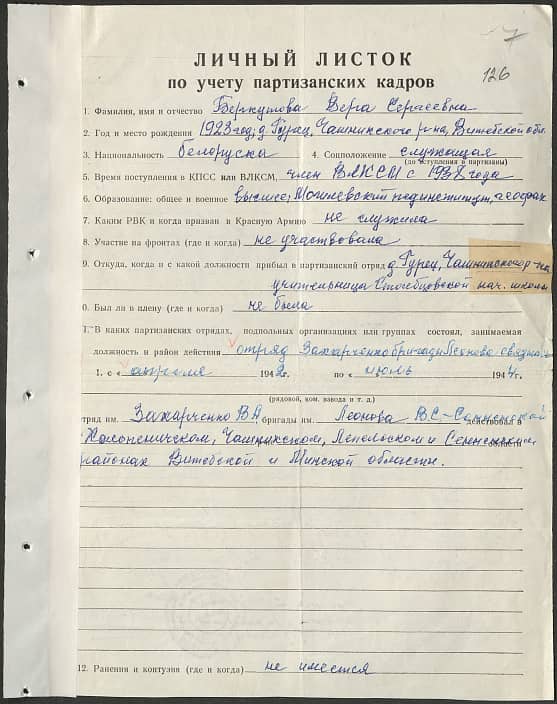 7
126
ЛИЧНЫЙ ЛИСТОК
по учету партизанских кадров
1. Фамилия, имя и отчество Беркутова Вера Сергеевна
2. Год и место рождения 1923 год, д. Гурец, Чашникского р-на, Витебской обл.
3. Национальность белоруска 4. Соцположение служащая
(до вступления в партизаны)
5. Время поступления в КПСС или ВЛКСМ, член ВЛКСМ с 1938 года
6. Образование: общее и военное высшее, Могилевский пединститут, геофак
7. Каким РВК и когда призван в Красную Армию не служила
8. Участие на фронтах (где и когда) не участвовала
9. Откуда, когда и с какой должности прибыл в партизанский отряд д. Гурец, Чашникского р-на
учительница нач. школы
0. Был ли в плену (где и когда) не была
1. В каких партизанских отрядах, подпольных организациях или группах состоял, занимаемая
должность и район действия отряд Захарченко бригады Леонова связная
1. с « апреля 1942г. по « июль 1944г.
(рядовой, ком. взвода и т. д.)
тряд им. Захарченко В.А. бригады им. Леонова В.С. - действовал в
Холопеничском, Чашникском, Лепельском и Сенненском области
районах Витебской и Минской области.
12. Ранения и контузия (где и когда) не имеется